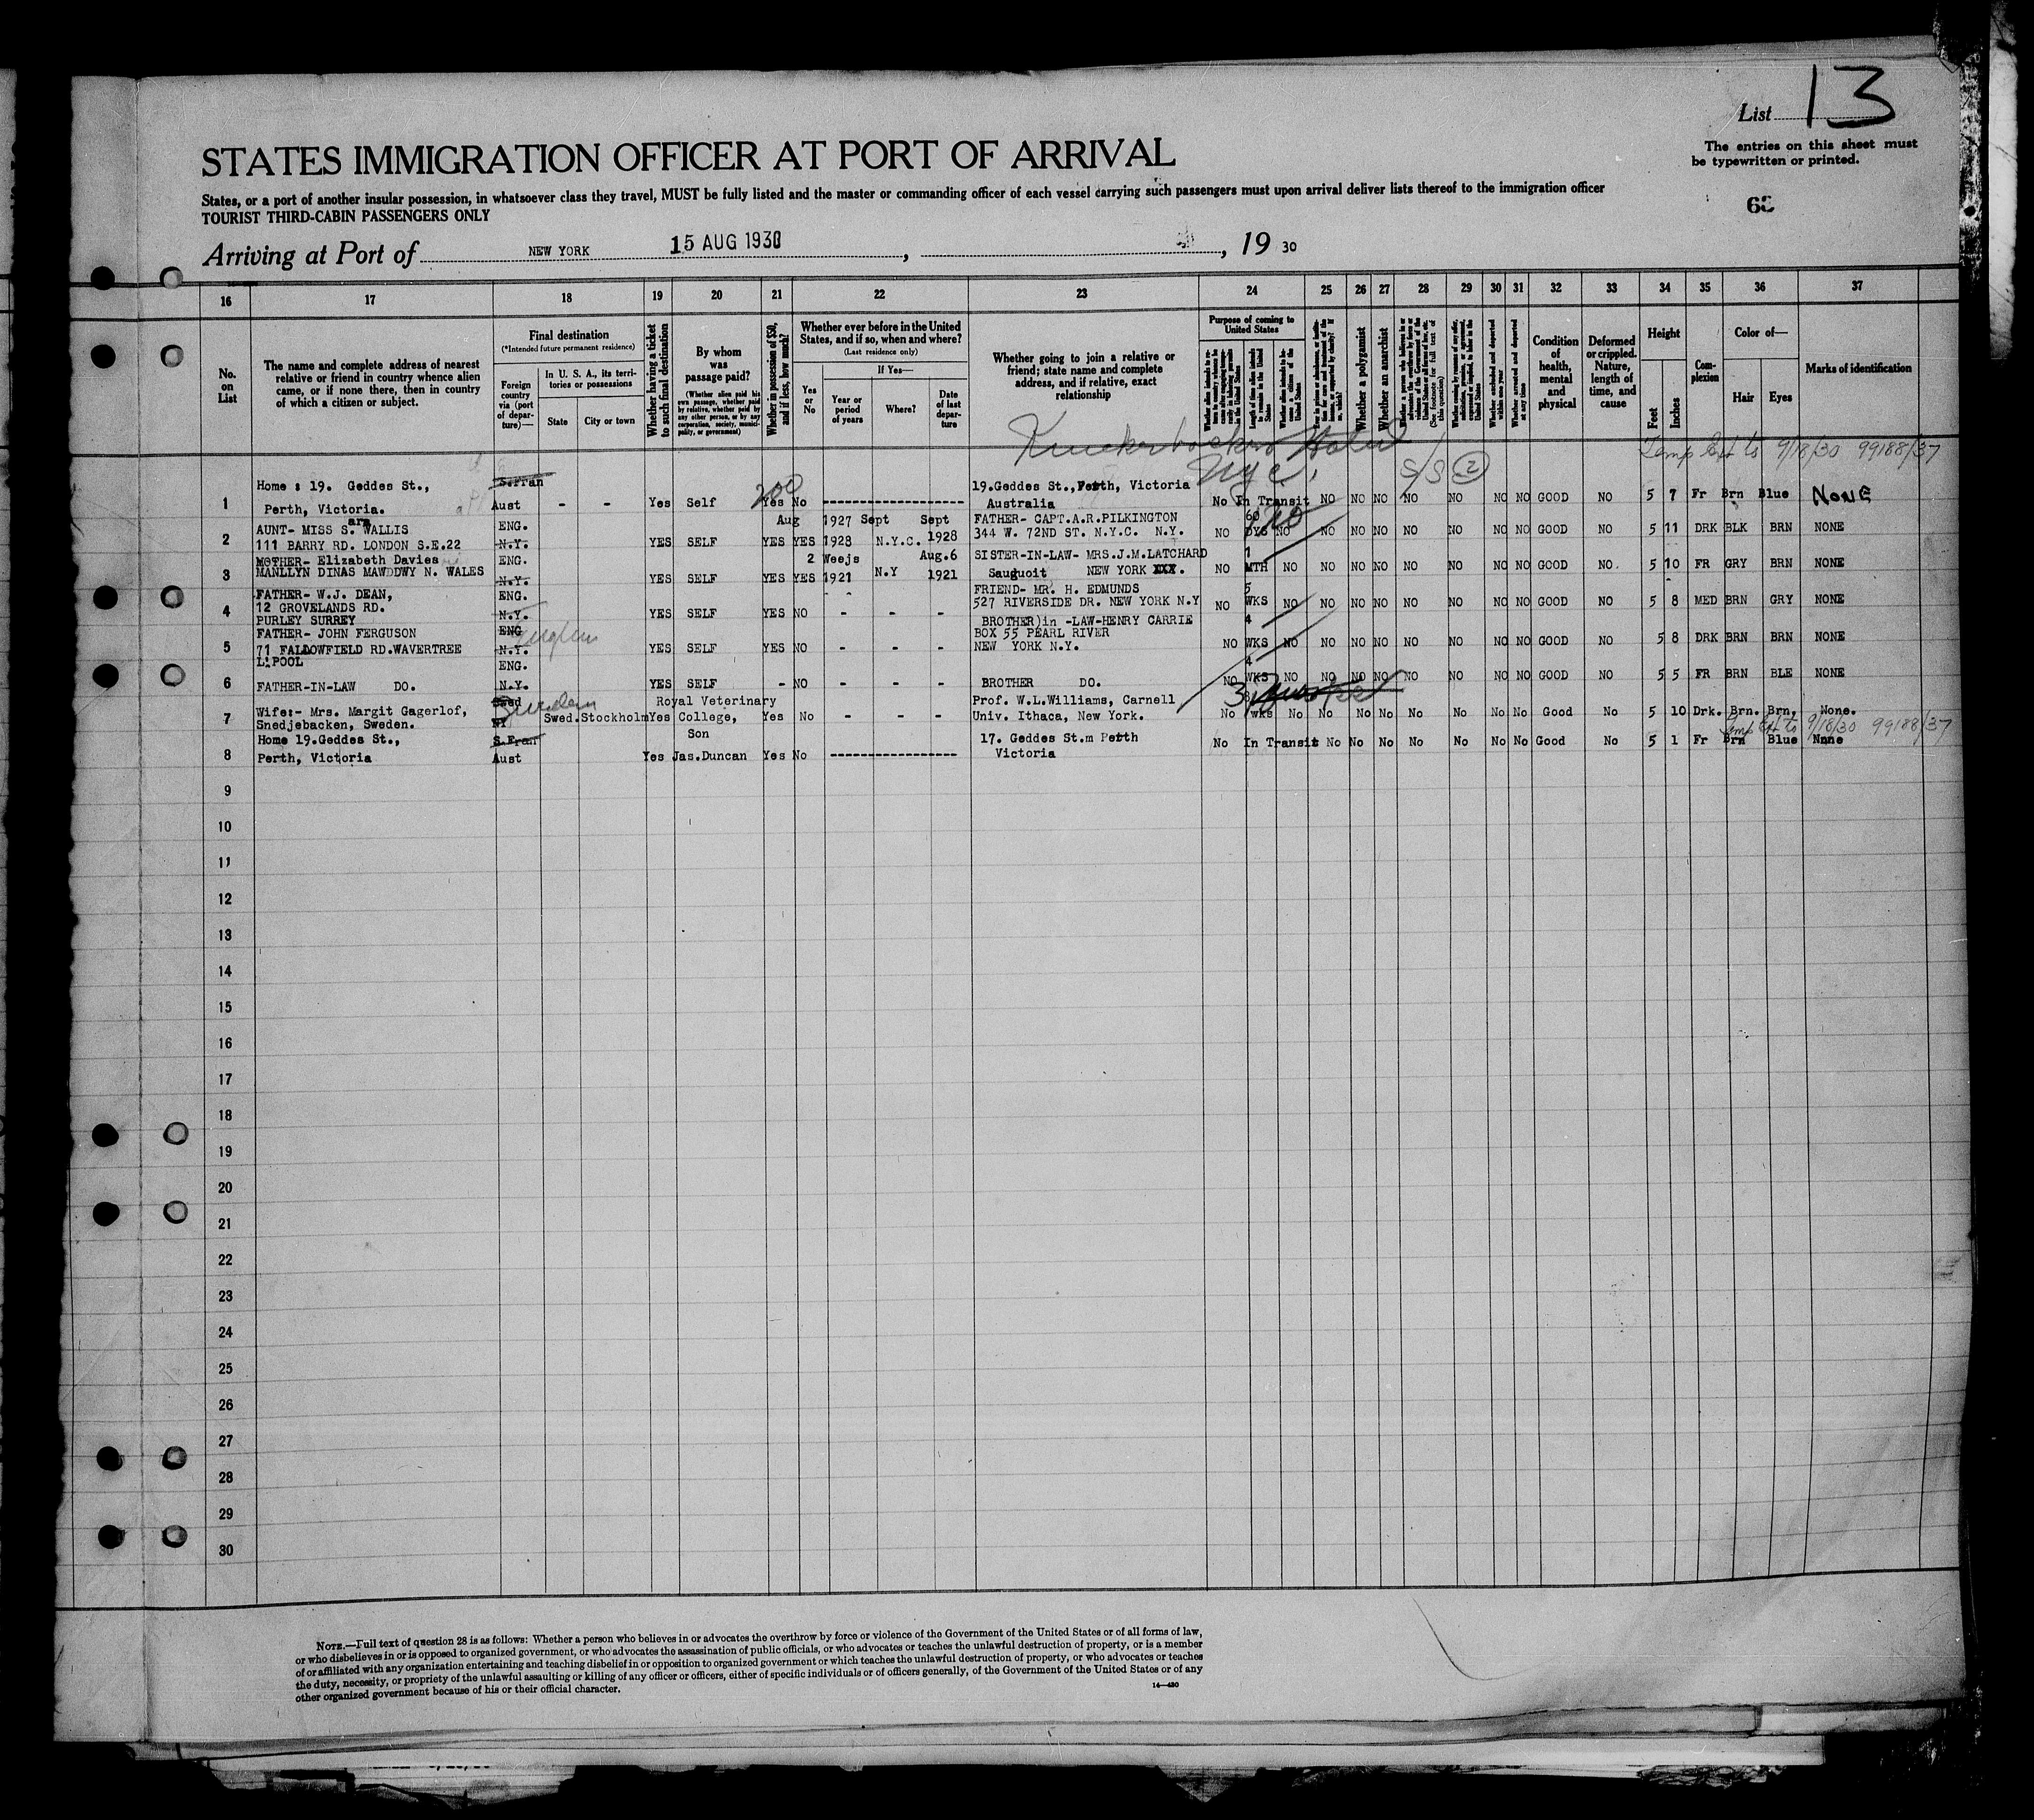 List 13
The entries on this sheet must
be typewritten or printed.
STATES IMMIGRATION OFFICER AT PORT OF ARRIVAL
States, or a port of another insular possession, in whatsoever class they travel, MUST be fully listed and the master or commanding officer of each vessel carrying such passengers must upon arrival deliver lists thereof to the immigration officer
TOURIST THIRD-CABIN PASSENGERS ONLY
Arriving at Port of NEW YORK 15 AUG 1930, , 19 30
16 17 18 19 20 21 22 23 24 25 26 27 28 29 30 31 32 33 34 35 36 37
No.
on
List
The name and complete address of nearest
relative or friend in country whence alien
came, or if none there, then in country
of which a citizen or subject.
Final destination
(*Intended future permanent residence)
Foreign
country
via (port
of depar-
ture)—
In U. S. A., its terri-
tories or possessions
State
City or town
Whether having a ticket
to such final destination
By whom
was
passage paid?
(Whether alien paid his
own passage, whether paid
by relative, whether paid by
any other person, or by any
corporation, society, munici-
pality, or government)
Whether in possession of $50,
and if less, how much?
Whether ever before in the United
States, and if so, when and where?
(Last residence only)
Yes
or
No
If Yes—
Year or
period
of years
Where?
Date
of last
depar-
ture
Whether going to join a relative or
friend; state name and complete
address, and if relative, exact
relationship
Purpose of coming to
United States
Length of time alien intends
to remain in the United
States
Whether alien intends to be-
come a citizen of the
United States
Whether a polygamist
Whether an anarchist
Whether excluded and deported
within one year
Whether arrested and deported
at any time
Condition
of
health,
mental
and
physical
Deformed
or crippled.
Nature,
length of
time, and
cause
Height
Feet
Inches
Com-
plexion
Color of—
Hair
Eyes
Marks of identification
Knickerbocker Hotel
NYC. S/S 2 Temp Ext to 9/18/30 99188/37
Home : 19. Geddes St., S.Fran 200 19.Geddes St., Perth, Victoria
1 Perth, Victoria. Aust - - Yes Self Yes No ----------------- Australia No In Transit NO NO NO NO NO NO NO GOOD NO 5 7 Fr Brn Blue NONE
AUNT- MISS S. WALLIS ENG. Aug 1927 Sept Sept FATHER- CAPT.A.R.PILKINGTON 60
2 111 BARRY RD. LONDON S.E.22 N.Y. YES SELF YES YES 1928 N.Y.C. 1928 344 W. 72ND ST. N.Y.C. N.Y. NO DYS NO NO NO NO NO NO NO NO GOOD NO 5 11 DRK BLK BRN NONE
MOTHER- Elizabeth Davies ENG. 2 Weejs Aug.6 SISTER-IN-LAW- MRS.J.M.LATCHARD 1
3 MANLLYN DINAS MAWDDWY N. WALES N.Y. YES SELF YES YES 1921 N.Y 1921 Sauguoit NEW YORK XXX. NO MTH NO NO NO NO NO NO NO NO GOOD NO. 5 10 FR GRY BRN NONE
FATHER- W.J. DEAN, ENG. FRIEND- MR. H. EDMUNDS 5
4 12 GROVELANDS RD. N.Y. YES SELF YES NO - - - 527 RIVERSIDE DR. NEW YORK N.Y NO WKS NO NO NO NO NO NO NO NO GOOD NO 5 8 MED BRN GRY NONE
PURLEY SURREY
FATHER- JOHN FERGUSON ENG BROTHER)in -LAW-HENRY CARRIE 4
5 71 FALLOWFIELD RD.WAVERTREE N.Y. YES SELF YES NO - - - BOX 55 PEARL RIVER
L'POOL NEW YORK N.Y. NO WKS NO NO NO NO NO NO NO NO GOOD NO 5 8 DRK BRN BRN NONE
ENG. 4
6 FATHER-IN-LAW DO. N.Y. YES SELF - NO - - - BROTHER DO. NO WKS NO NO NO NO NO NO NO NO GOOD NO 5 5 FR BRN BLE NONE
Wife:- Mrs. Margit Gagerlof, Swed Sweden Royal Veterinary Prof. W.L.Williams, Carnell
7 Snedjebacken, Sweden. NY Swed. Stockholm Yes College, Yes No - - - Univ. Ithaca, New York. No wks No No No No No No No No Good No 5 10 Drk. Brn. Brn, None.
Temp Ext to 9/18/30 99188/37
Home 19.Geddes St., S.Fran Son 17. Geddes St.m Perth
8 Perth, Victoria Aust Yes Jas.Duncan Yes No ----------------- Victoria No In Transit No No No No No No No Good No 5 1 Fr Brn Blue None
9
10
11
12
13
14
15
16
17
18
19
20
21
22
23
24
25
26
27
28
29
30
NOTE.—Full text of question 28 is as follows: Whether a person who believes in or advocates the overthrow by force or violence of the Government of the United States or of all forms of law,
or who disbelieves in or is opposed to organized government, or who advocates the assassination of public officials, or who advocates or teaches the unlawful destruction of property, or is a member
of or affiliated with any organization entertaining and teaching disbelief in or opposition to organized government or which teaches the unlawful destruction of property, or who advocates or teaches
the duty, necessity, or propriety of the unlawful assaulting or killing of any officer or officers, either of specific individuals or of officers generally, of the Government of the United States or of any
other organized government because of his or their official character.
14—430